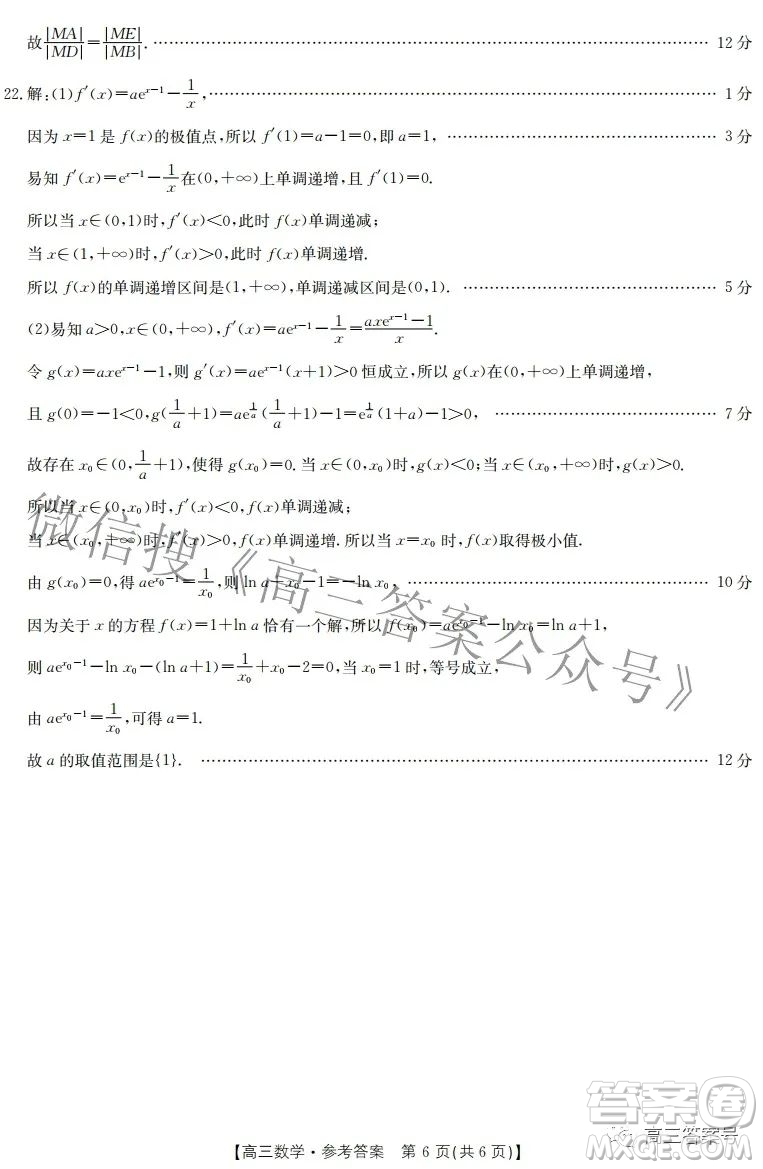 故|MA|/|MD|=|ME|/|MB|. 12分
22.解:(1)f′(x)=ae^{x−1}−1/x, 1分
因为x=1是f(x)的极值点,所以f′(1)=a−1=0,即a=1, 3分
易知f′(x)=e^{x−1}−1/x在(0,+∞)上单调递增,且f′(1)=0.
所以当x∈(0,1)时,f′(x)<0,此时f(x)单调递减;
当x∈(1,+∞)时,f′(x)>0,此时f(x)单调递增.
所以f(x)的单调递增区间是(1,+∞),单调递减区间是(0,1). 5分
(2)易知a>0,x∈(0,+∞),f′(x)=ae^{x−1}−1/x=(axe^{x−1}−1)/x.
令g(x)=axe^{x−1}−1,则g′(x)=ae^{x−1}(x+1)>0恒成立,所以g(x)在(0,+∞)上单调递增,
且g(0)=−1<0,g(1/a+1)=ae^{1/a}(1/a+1)−1=e^{1/a}(1+a)−1>0, 7分
故存在x₀∈(0,1/a+1),使得g(x₀)=0.当x∈(0,x₀)时,g(x)<0;当x∈(x₀,+∞)时,g(x)>0.
所以当x∈(0,x₀)时,f′(x)<0,f(x)单调递减;
当x∈(x₀,+∞)时,f′(x)>0,f(x)单调递增.所以当x=x₀时,f(x)取得极小值.
由g(x₀)=0,得ae^{x₀−1}=1/x₀,则ln a+x₀−1=−ln x₀, 10分
因为关于x的方程f(x)=1+ln a恰有一个解,所以f(x₀)=ae^{x₀−1}−ln x₀=ln a+1,
则ae^{x₀−1}−ln x₀−(ln a+1)=1/x₀+x₀−2=0,当x₀=1时,等号成立,
由ae^{x₀−1}=1/x₀,可得a=1.
故a的取值范围是{1}. 12分
微信搜《高三答案公众号》
答案卷
高三答案号
MXQE.COM
【高三数学·参考答案 第6页(共6页)】